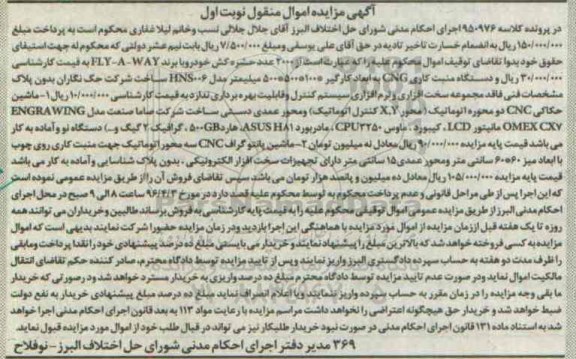 آگهی مزایده اموال منقول نوبت اول
در پرونده کلاسه ۹۵۰۹۷۶ اجرای احکام مدنی شورای حل اختلاف البرز آقای جلال جلالی نسب وخانم لیلا غفاری محکوم است به پرداخت مبلغ
۱۵۰/۰۰۰/۰۰۰ ریال به انضمام خسارت تاخیر تادیه در حق آقای علی یوسفی ومبلغ ۷/۵۰۰/۰۰۰ ریال بابت نیم عشر دولتی که محکوم له جهت استیفای
حقوق خود بدوا تقاضای توقیف اموال محکوم علیه را که عبارت است از ۲۰۰۰ عدد حشره کش خودرو با برند FLY-A-WAY به قیمت کارشناسی
۳۰/۰۰۰/۰۰۰ ریال و دستگاه منبت کاری CNG به ابعاد کارگیر ۱۰۰*۵۰۰*۵۰۰ میلیمتر مدل HNS۰۰۶ ساخت شرکت حک نگاران بدون پلاک
مشخصات فنی فاقد مجموعه سخت افزاری ونرم افزاری سیستم کنترل وقابلیت بهره برداری ندارد به قیمت کارشناسی ۱۰/۰۰۰/۰۰۰ ریال ۱-ماشین
حکاکی CNC دو محوره اتوماتیک (محور X,Y کنترل اتوماتیک) ومحور عمدی دستی ساخت شرکت صاما صنعت مدل ENGRAWING
OMEX CXY مانیتور LCD، کیبورد، ماوس CPU۳۲۵۰، مادربورد ASUS H۸۱، هارد ۵۰۰GB، گرافیک ۲ گیگ و...) دستگاه نو و آماده به کار
می باشد قیمت پایه مزایده ۹۰/۰۰۰/۰۰۰ ریال معادل نه میلیون تومان ۲-ماشین پانتو گراف CNC سه محور اتوماتیک جهت منبت کاری روی چوب
با ابعاد میز ۶۰*۶۰ سانتی متر ومحور عمدی ۱۵ سانتی متر دارای تجهیزات سخت افزار الکترونیکی، بدون پلاک شناسایی و آماده به کار می باشد
قیمت پایه مزایده ۱۰۵/۰۰۰/۰۰۰ ریال معادل ده میلیون و پانصد هزار تومان می باشد سپس تقاضای فروش آن را از طریق مزایده عمومی نموده است
که این اجرا پس از طی مراحل قانونی و عدم پرداخت محکوم به توسط محکوم علیه قصد دارد در مورخ ۹۶/۴/۳ ساعت ۸ الی ۹ صبح در محل اجرای
احکام مدنی البرز از طریق مزایده عمومی اموال توقیفی محکوم علیه را به قیمت پایه کارشناسی به فروش برساند طالبین وخریداران می توانند همه
روزه تا یک هفته قبل از زمان مزایده از اموال مورد مزایده با هماهنگی این اجرا بازدید ودر زمان مزایده حضورا شرکت نمایند بدیهی است که اموال
مزایده به کسی فروخته خواهد شد که بالاترین مبلغ را پیشنهاد نمایند و خریدار می بایستی مبلغ ده درصد پیشنهادی خود را نقدا پرداخت ومابقی
را ظرف مدت دو هفته به حساب سپرده دادگستری البرز واریز نمایند وپس از تایید مزایده توسط دادگاه محترم، صادر کننده حکم تقاضای انتقال
مالکیت اموال نماید ودر صورت عدم تایید مزایده توسط دادگاه محترم مبلغ ده درصد واریزی به خریدار مسترد خواهد شد ودر صورتی که خریدار
ما بقی وجه مزایده را در زمان مقرر به حساب سپرده واریز ننمایند ویا اعلام انصراف نماید مبلغ ده درصد مبلغ پیشنهادی خریدار به نفع دولت
ضبط خواهد شد و خریدار حق هیچگونه اعتراضی را نخواهد داشت مراسم مزایده با رعایت مواد ۱۱۳ به بعد قانون اجرای احکام مدنی اجرا خواهد
شد به استناد ماده ۱۳۱ قانون اجرای احکام مدنی در صورت نبود خریدار طلبکار نیز می تواند در قبال طلب خود از اموال مورد مزایده قبول نماید.
۳۶۹ مدیر دفتر اجرای احکام مدنی شورای حل اختلاف البرز - نوفلاح